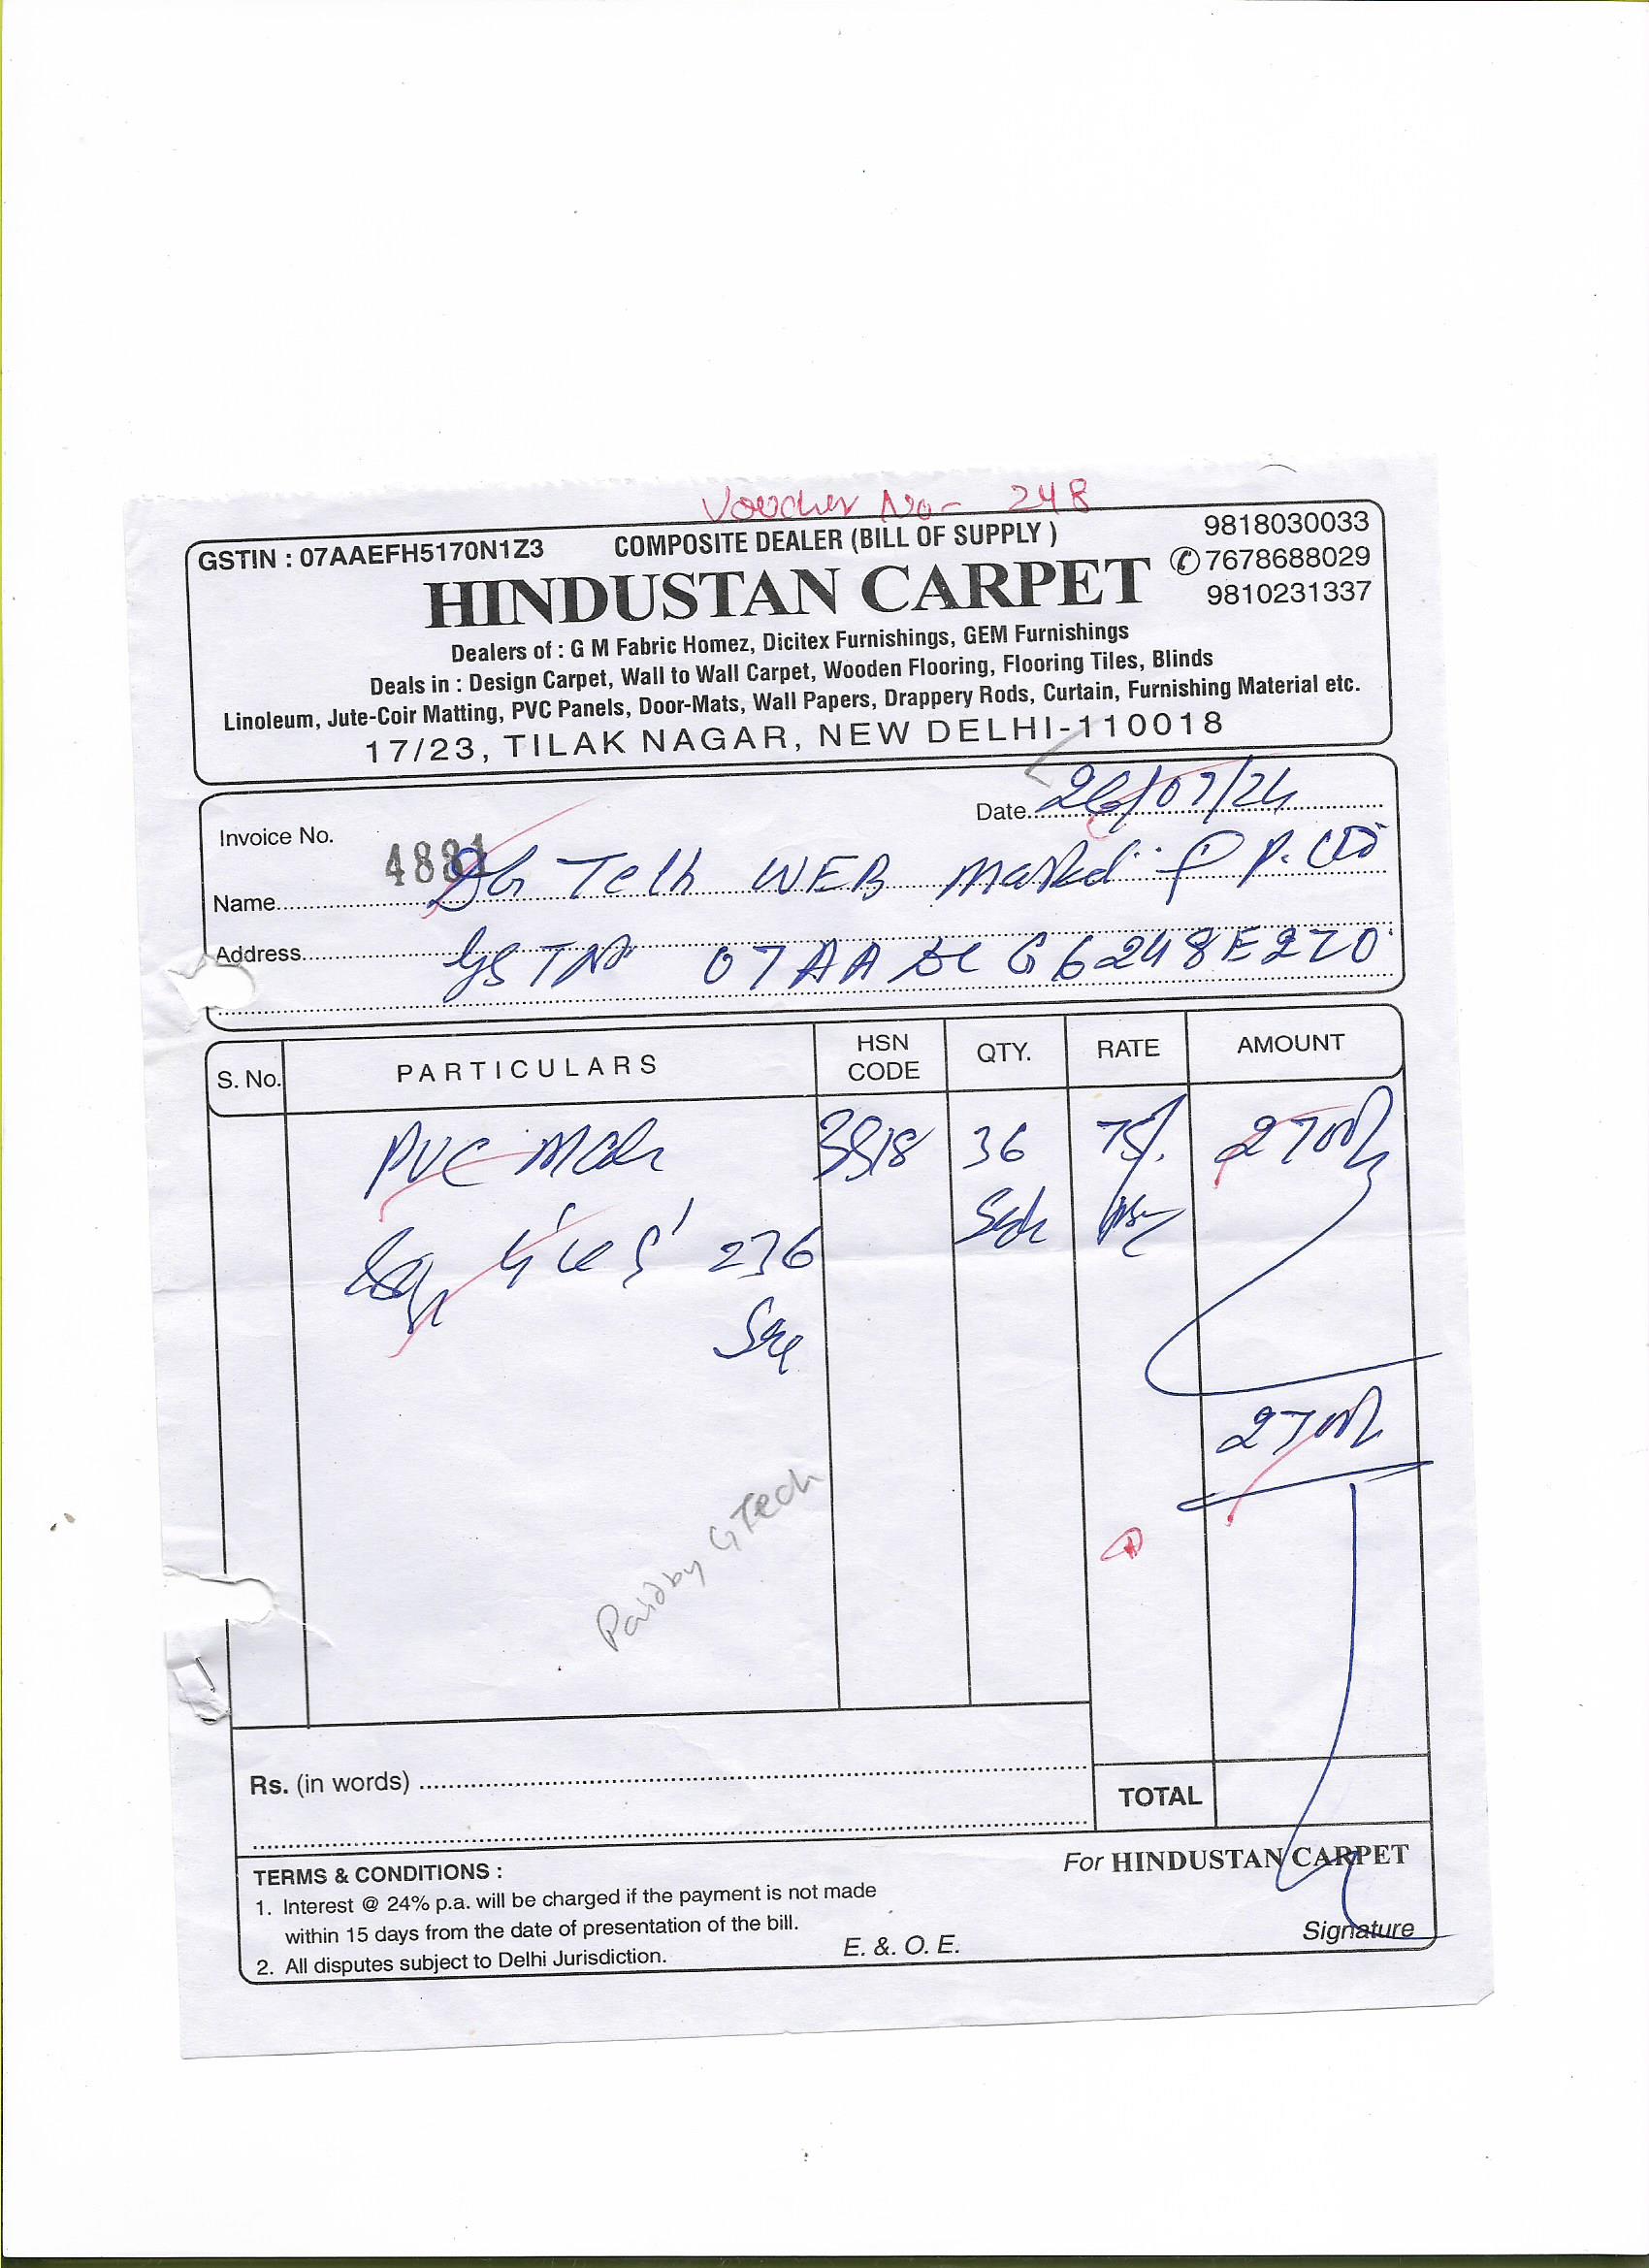 Voucher No- 248
GSTIN : 07AAEFH5170N1Z3
COMPOSITE DEALER (BILL OF SUPPLY )
9818030033
7678688029
9810231337
HINDUSTAN CARPET
Dealers of : G M Fabric Homez, Dicitex Furnishings, GEM Furnishings
Deals in : Design Carpet, Wall to Wall Carpet, Wooden Flooring, Flooring Tiles, Blinds
Linoleum, Jute-Coir Matting, PVC Panels, Door-Mats, Wall Papers, Drappery Rods, Curtain, Furnishing Material etc.
17/23, TILAK NAGAR, NEW DELHI-110018
Date 26/07/24
Invoice No. 4881
Name Tech WEB
Address
S. No. PARTICULARS HSN CODE QTY. RATE AMOUNT
PVC 36 75/ 2700/
236
2700/
Paid by G Tech
Rs. (in words)
TOTAL
TERMS & CONDITIONS :
1. Interest @ 24% p.a. will be charged if the payment is not made
within 15 days from the date of presentation of the bill.
2. All disputes subject to Delhi Jurisdiction.
E. &. O. E.
For HINDUSTAN CARPET
Signature